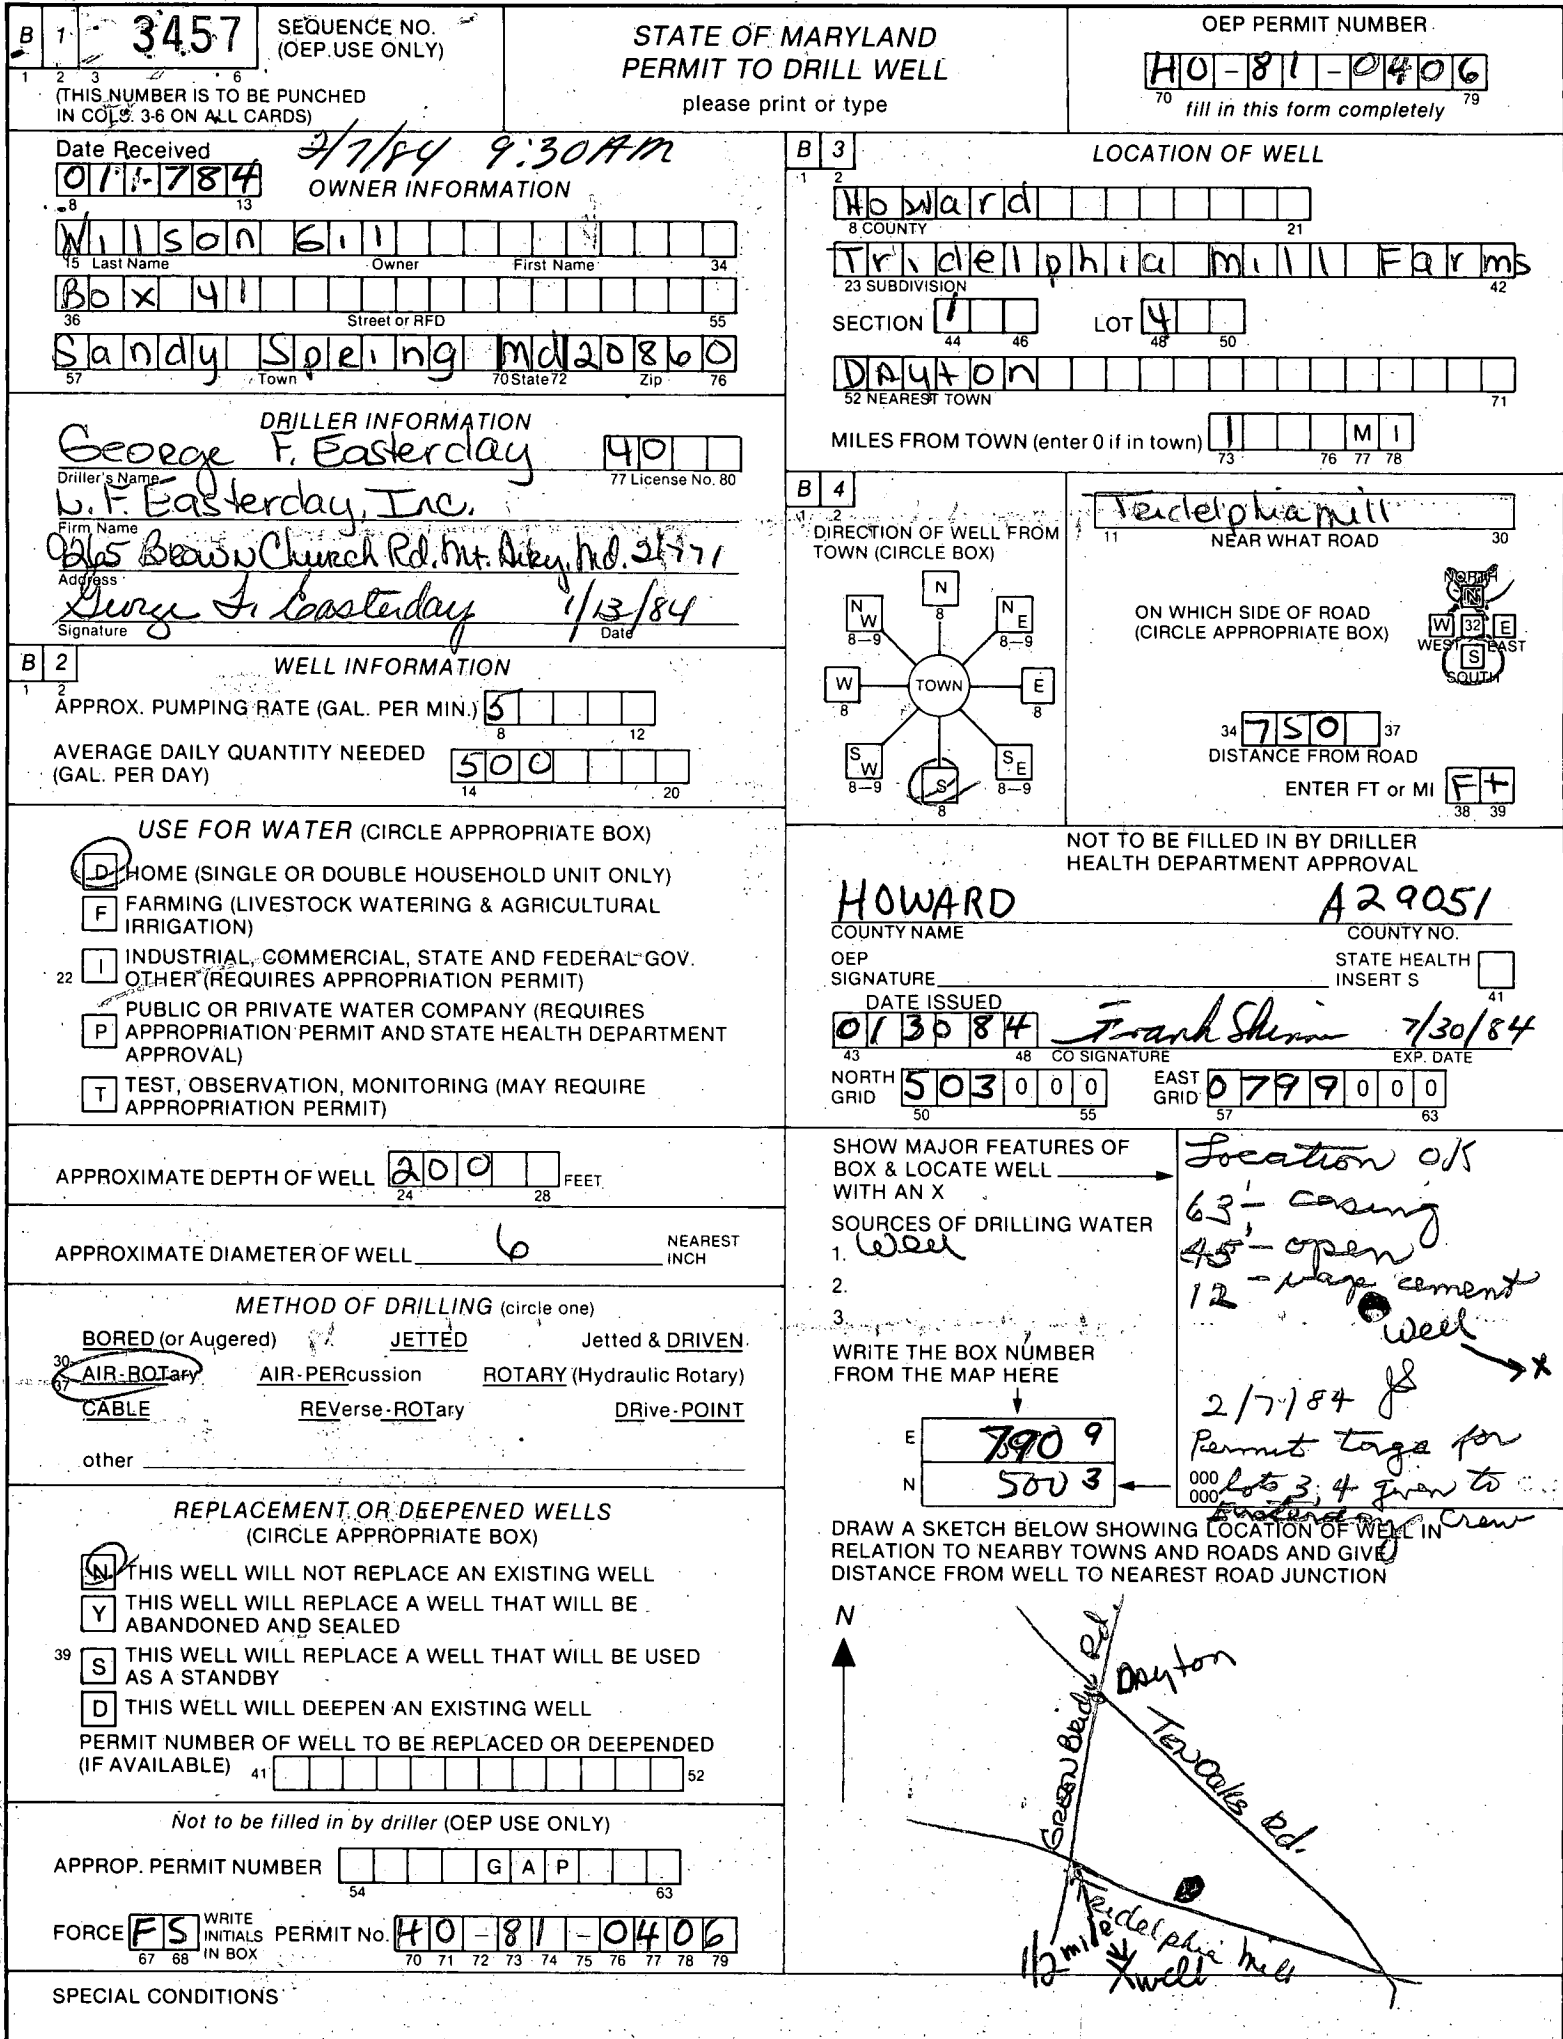 B 1 3457 SEQUENCE NO. (OEP USE ONLY)
1 2 3 6
(THIS NUMBER IS TO BE PUNCHED
IN COLS. 3-6 ON ALL CARDS)
STATE OF MARYLAND
PERMIT TO DRILL WELL
please print or type
OEP PERMIT NUMBER
HO-81-0406
70 79
fill in this form completely
Date Received 2/7/84 9:30AM
011784
8 13
OWNER INFORMATION
Wilson Gil
15 Last Name Owner First Name 34
Box 41
36 Street or RFD 55
Sandy Speing Md 20860
57 Town 70 State 72 Zip 76
DRILLER INFORMATION
George F. Easterday 40
Driller's Name 77 License No. 80
L. F. Easterday, Inc.
Firm Name
9265 Brown Church Rd. Mt. Airy, Md. 21771
Address
George F. Easterday 1/13/84
Signature Date
B 2 WELL INFORMATION
1 2
APPROX. PUMPING RATE (GAL. PER MIN.) 5
8 12
AVERAGE DAILY QUANTITY NEEDED
(GAL. PER DAY) 500
14 20
USE FOR WATER (CIRCLE APPROPRIATE BOX)
D HOME (SINGLE OR DOUBLE HOUSEHOLD UNIT ONLY)
F FARMING (LIVESTOCK WATERING & AGRICULTURAL
IRRIGATION)
22 I INDUSTRIAL, COMMERCIAL, STATE AND FEDERAL GOV.
OTHER (REQUIRES APPROPRIATION PERMIT)
P PUBLIC OR PRIVATE WATER COMPANY (REQUIRES
APPROPRIATION PERMIT AND STATE HEALTH DEPARTMENT
APPROVAL)
T TEST, OBSERVATION, MONITORING (MAY REQUIRE
APPROPRIATION PERMIT)
APPROXIMATE DEPTH OF WELL 200 FEET
24 28
APPROXIMATE DIAMETER OF WELL 6 NEAREST
INCH
METHOD OF DRILLING (circle one)
BORED (or Augered) JETTED Jetted & DRIVEN
30
37 AIR-ROTary AIR-PERcussion ROTARY (Hydraulic Rotary)
CABLE REVerse-ROTary DRive-POINT
other
REPLACEMENT OR DEEPENED WELLS
(CIRCLE APPROPRIATE BOX)
N THIS WELL WILL NOT REPLACE AN EXISTING WELL
Y THIS WELL WILL REPLACE A WELL THAT WILL BE
ABANDONED AND SEALED
39 S THIS WELL WILL REPLACE A WELL THAT WILL BE USED
AS A STANDBY
D THIS WELL WILL DEEPEN AN EXISTING WELL
PERMIT NUMBER OF WELL TO BE REPLACED OR DEEPENDED
(IF AVAILABLE) 41 52
Not to be filled in by driller (OEP USE ONLY)
APPROP. PERMIT NUMBER G A P
54 63
FORCE FS WRITE INITIALS IN BOX PERMIT No. HO-81-0406
67 68 70 71 72 73 74 75 76 77 78 79
SPECIAL CONDITIONS
B 3 LOCATION OF WELL
1 2
Howard
8 COUNTY 21
Tridelphia mill Farms
23 SUBDIVISION 42
SECTION 1 LOT 4
44 46 48 50
DAyton
52 NEAREST TOWN 71
MILES FROM TOWN (enter 0 if in town) 1 M I
73 76 77 78
B 4
1 2
DIRECTION OF WELL FROM
TOWN (CIRCLE BOX)
N
8
NW NE
8-9 8-9
W TOWN E
8 8
SW S SE
8-9 8 8-9
Teidelphia mill
11 NEAR WHAT ROAD 30
ON WHICH SIDE OF ROAD
(CIRCLE APPROPRIATE BOX)
NORTH
N
W 32 E
WEST EAST
S
SOUTH
34 750 37
DISTANCE FROM ROAD
ENTER FT or MI Ft
38 39
NOT TO BE FILLED IN BY DRILLER
HEALTH DEPARTMENT APPROVAL
HOWARD A29051
COUNTY NAME COUNTY NO.
OEP
SIGNATURE STATE HEALTH
INSERT S
41
DATE ISSUED
013084 Frank Skinn 7/30/84
43 48 CO SIGNATURE EXP. DATE
NORTH GRID 503000 EAST GRID 0799000
50 55 57 63
SHOW MAJOR FEATURES OF
BOX & LOCATE WELL
WITH AN X
SOURCES OF DRILLING WATER
1. Well
2.
3.
WRITE THE BOX NUMBER
FROM THE MAP HERE
E 790 9
N 500 3
000
000
Location O/K
63' - casing
45' - open
12 - cement
Well
X
2/7/84
Permit tags for
lots 3, 4 given to
Easterday Crew
DRAW A SKETCH BELOW SHOWING LOCATION OF WELL IN
RELATION TO NEARBY TOWNS AND ROADS AND GIVE
DISTANCE FROM WELL TO NEAREST ROAD JUNCTION
N
GREEN Bridge Rd.
DAyton
TENOaks Rd.
Teidelphia Mill
1/2 mile
X well